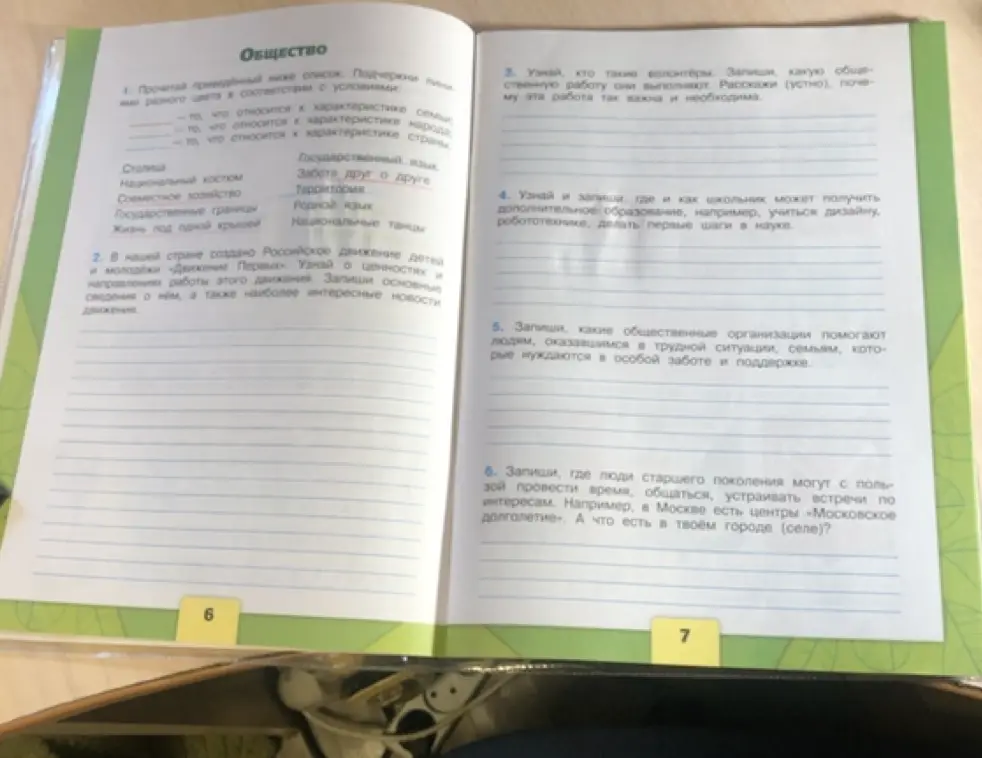 ОБЩЕСТВО
1. Прочитай приведённый ниже список. Подчеркни лини-
ями разного цвета в соответствии с условиями:
— то, что относится к характеристике семьи;
— то, что относится к характеристике народа;
— то, что относится к характеристике страны.
Столица
Национальный костюм
Совместное хозяйство
Государственные границы
Жизнь под одной крышей
Государственный язык
Забота друг о друге
Территория
Родной язык
Национальные танцы
2. В нашей стране создано Российское движение детей
и молодёжи «Движение Первых». Узнай о ценностях и
направлениях работы этого движения. Запиши основные
сведения о нём, а также наиболее интересные новости
движения.
6
3. Узнай, кто такие волонтёры. Запиши, какую обще-
ственную работу они выполняют. Расскажи (устно), поче-
му эта работа так важна и необходима.
4. Узнай и запиши, где и как школьник может получить
дополнительное образование, например, учиться дизайну,
робототехнике, делать первые шаги в науке.
5. Запиши, какие общественные организации помогают
людям, оказавшимся в трудной ситуации, семьям, кото-
рые нуждаются в особой заботе и поддержке.
6. Запиши, где люди старшего поколения могут с поль-
зой провести время, общаться, устраивать встречи по
интересам. Например, в Москве есть центры «Московское
долголетие». А что есть в твоём городе (селе)?
7